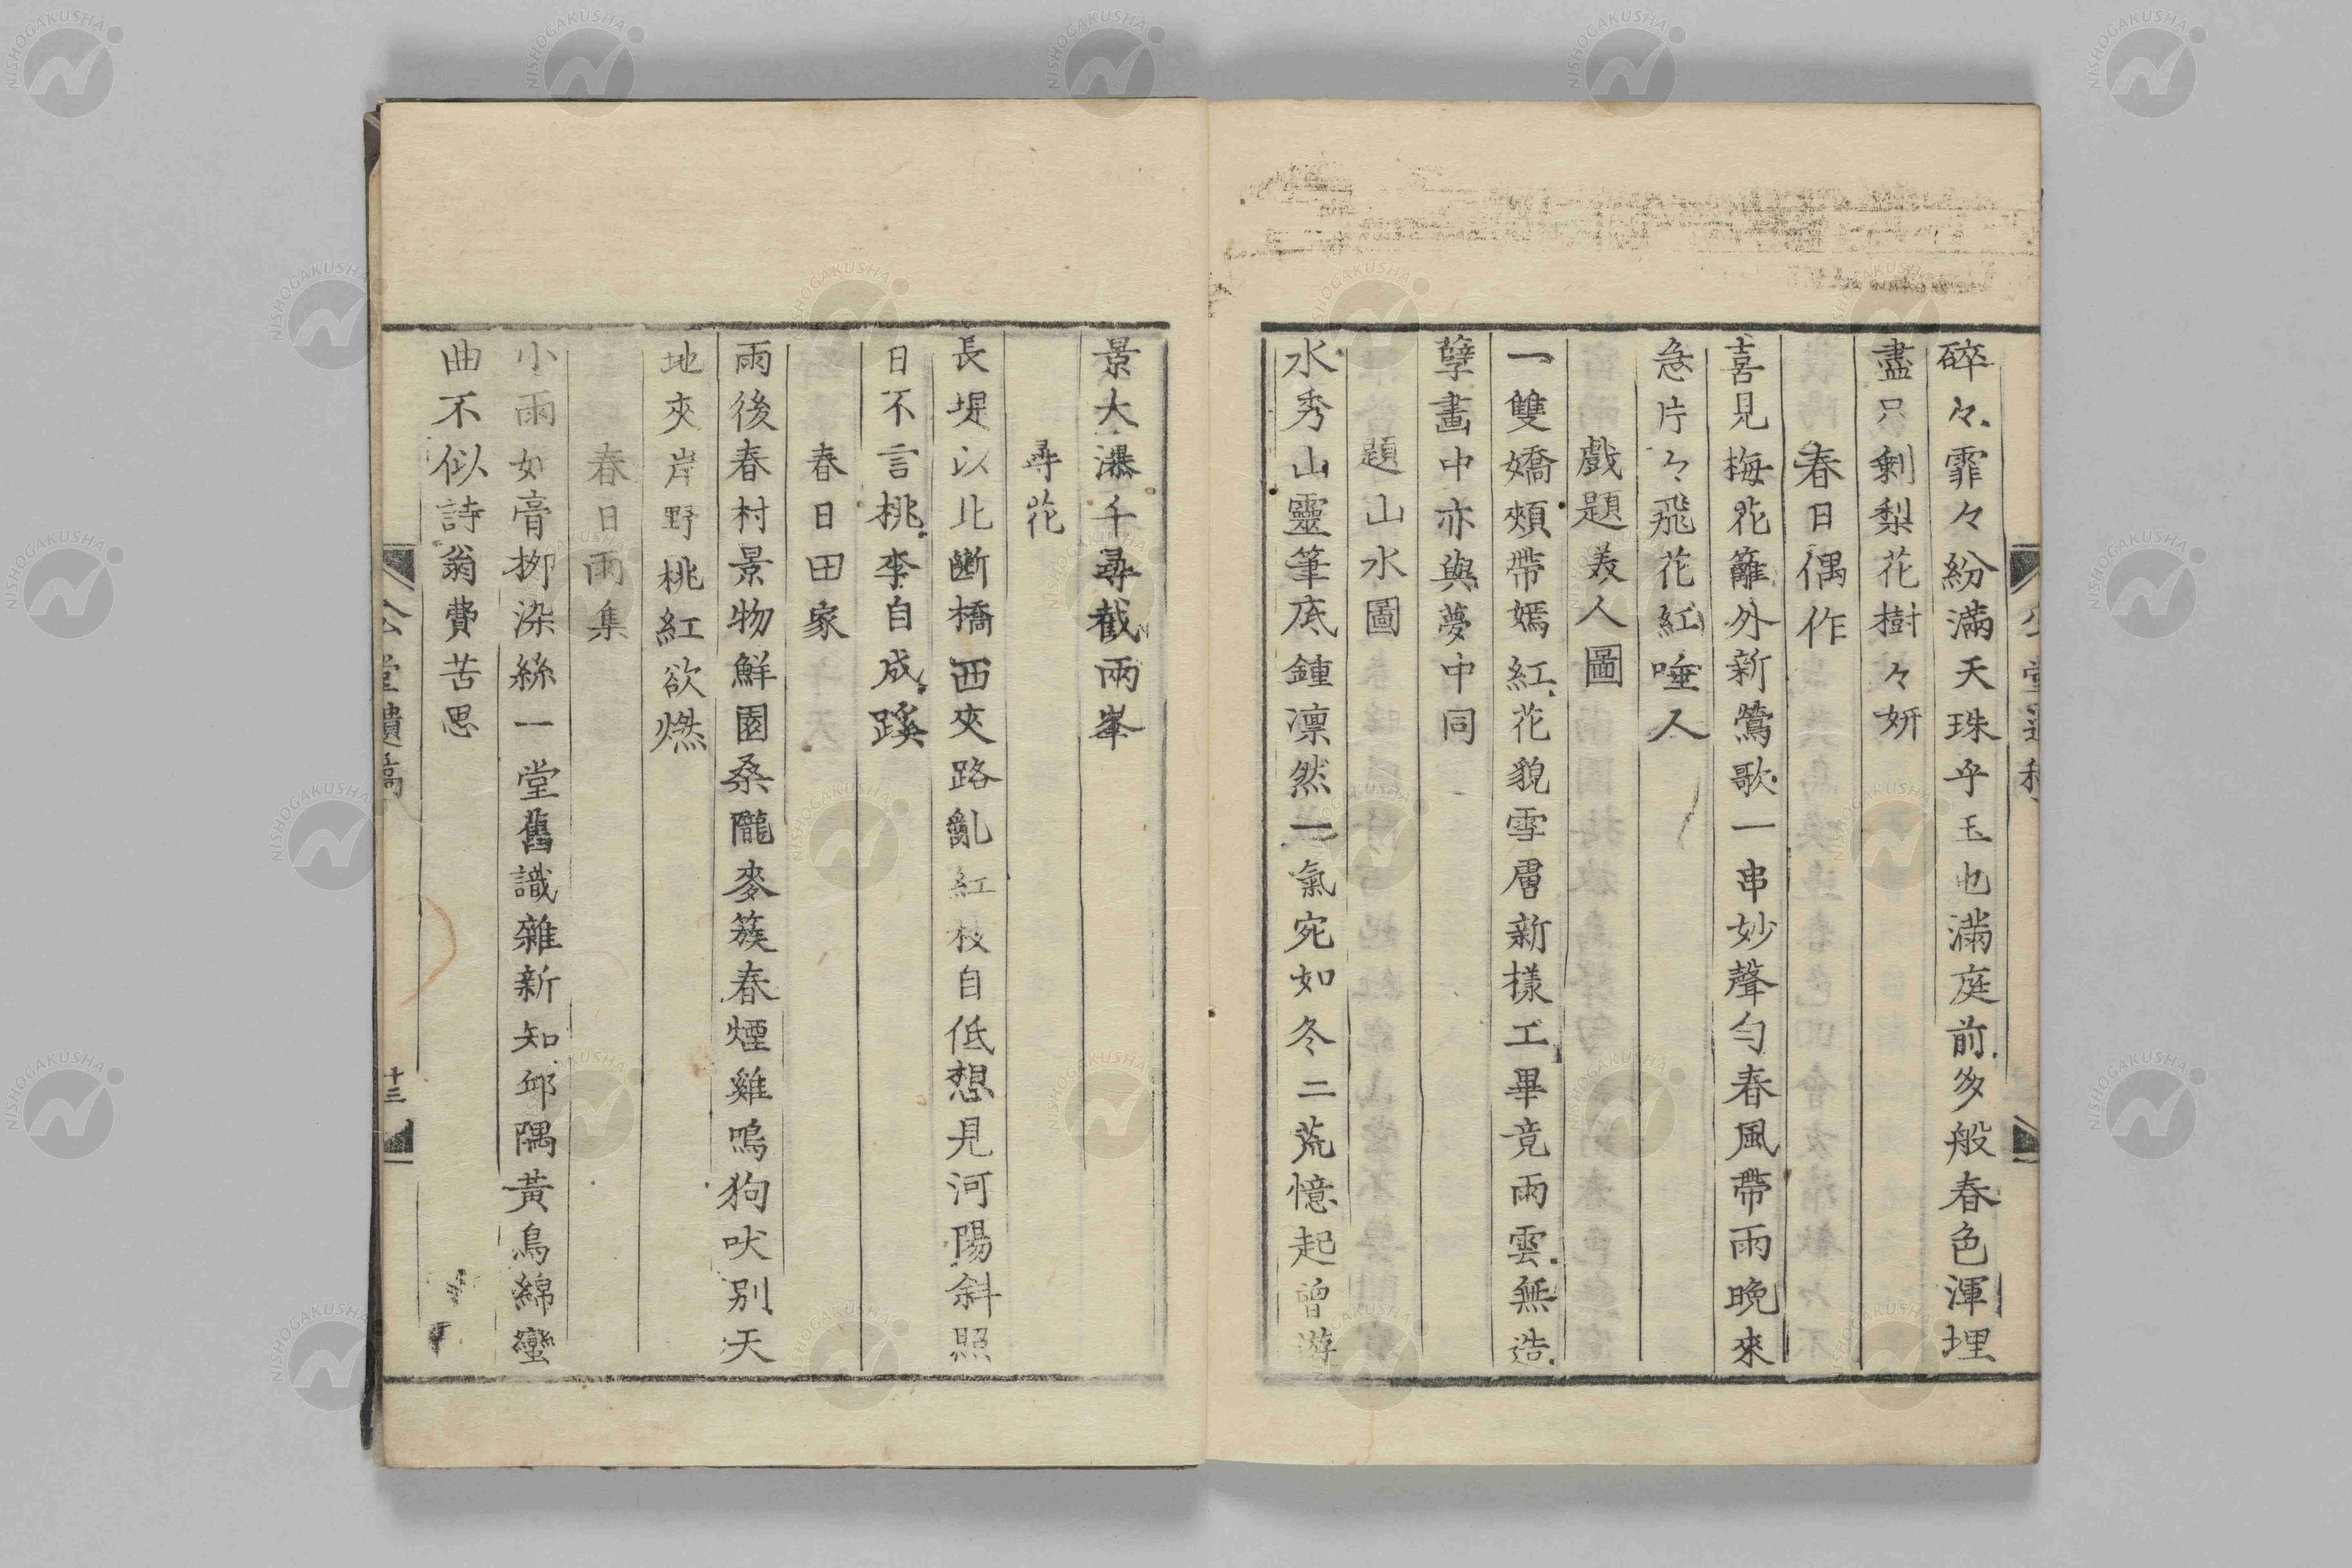 碎々霏々紛滿天珠乎玉也滿庭前多般春色渾埋
盡只剩梨花樹々妍
春日偶作
喜見梅花籬外新鶯歌一串妙聲勻春風帶雨晩來
急片々飛花紅唾人
戲題美人圖
一雙嬌頰帶嫣紅花貌雪膚新樣工畢竟雨雲無造
孽畫中亦與夢中同
題山水圖
水秀山靈筆底鍾凛然一氣宛如冬二荒憶起曾游
景大瀑千尋截兩峯
尋花
長堤以北斷橋西夾路亂紅枝自低想見河陽斜照
日不言桃李自成蹊
春日田家
雨後春村景物鮮園桑隴麥簇春煙雞鳴狗吠別天
地夾岸野桃紅欲燃
春日雨集
小雨如膏柳染絲一堂舊識雜新知邱隅黃鳥綿蠻
曲不似詩翁費苦思
堂遺稿
十三
NISHOGAKUSHA